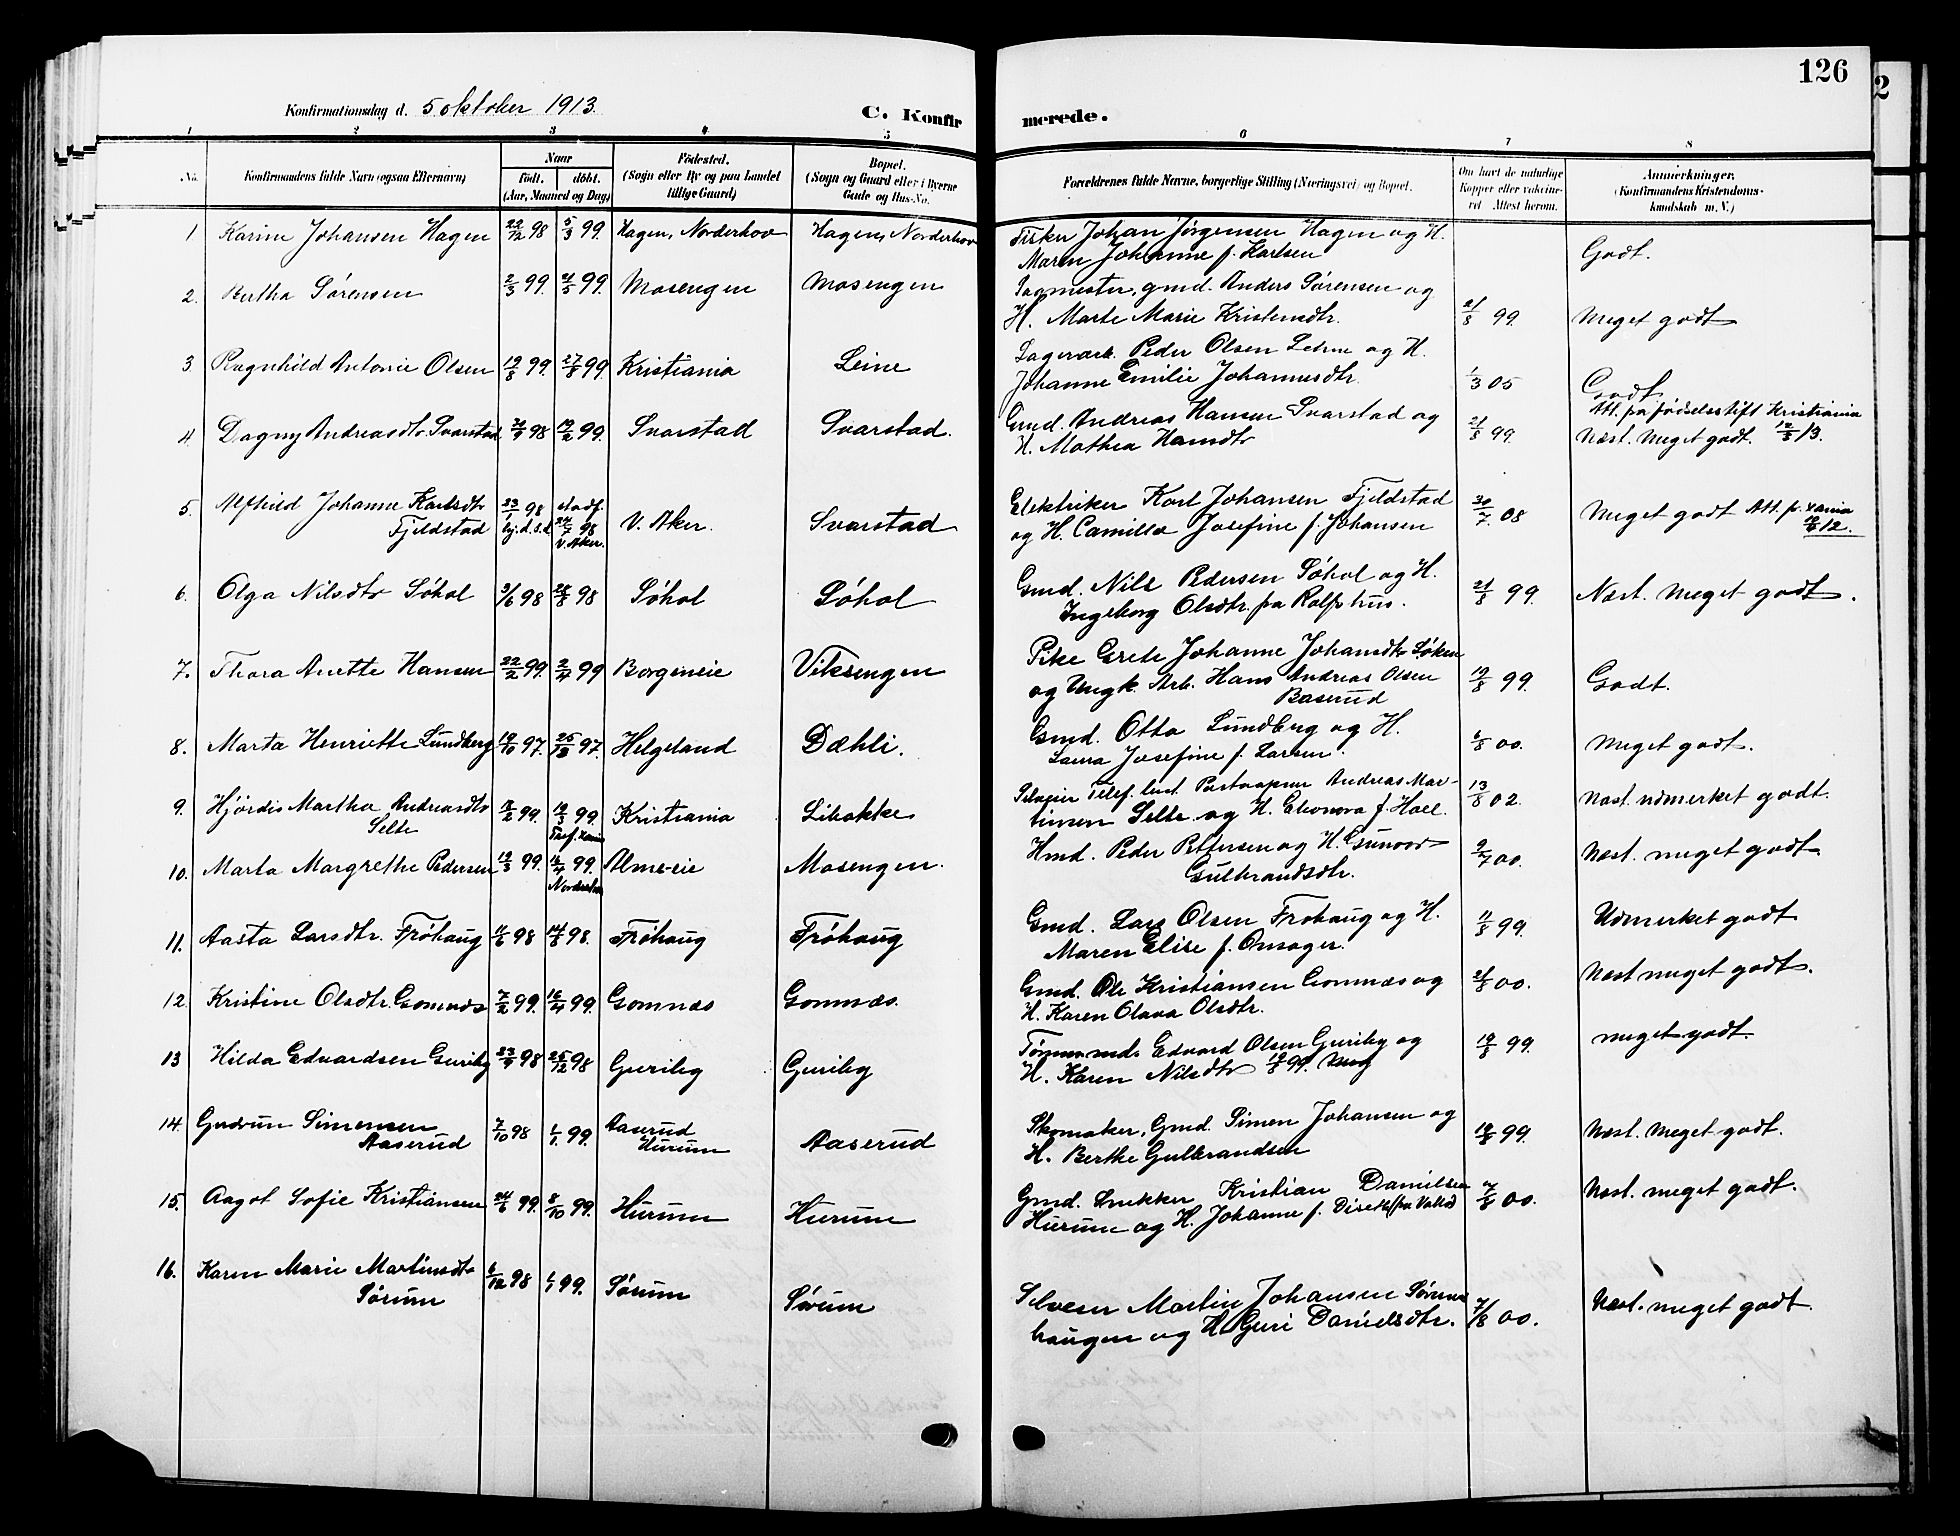 126
2
Konfirmationsdag d. 5 oktober 1913.
C. Konfirmerede.
1 2 3 4 5 6 7 8
No.
Konfirmandens fulde Navn (ogsaa Efternavn)
Naar
födt. döbt.
(Aar, Maaned og Dag)
Födested.
(Sogn eller By og paa Landet
tillige Gaard)
Bopæl.
(Sogn og Gaard eller i Byerne
Gade og Hus-No.
Forældrenes fulde Navne, borgerlige Stilling (Næringsvei) og Bopæl.
Om havt de naturlige
Kopper eller vaccineret Attest herom.
Anmærkninger.
(Konfirmandens Kristendomskundskab m. V.)
1 Karine Johansen Hagen 22/12 98 5/3 99. Hagen, Norderhov Hagen, Norderhov
Johan Jørgensen Hagen og H.
Maren Johanne f. Karlsen Godt.
2. Bertha Sørensen 2/3 99. 99. Mosengen Mosengen
Sagmester, gmd. Anders Sørensen og
H. Marte Marie Kristensdtr. 21/8 99. Meget godt
3. Ragnhild Antonie Olsen 19/8 99. 27/8 99. Kristiania Leine
Lagerarb. Peder Olsen og H.
Johanne Emilie Johannesdtr. 1/3 05 Godt
Att. fra fødselsstift Kristiania
4. Dagny Andreasdtr. Svarstad 98 99. Svarstad Svarstad.
Gmd. Andreas Hansen Svarstad og
H. Mathea Hansdtr 21/8 99. Næst. meget godt. 13.
5. Alfhild Johanne Karlsdtr
Fjeldstad 23/1 98 hj.d.s.d. stadf. 98 V. Aker. V. Aker. Svarstad
Elektriker Karl Johansen Fjeldstad
og H. Camilla Josefine f. Johansen 30/7. 08 Meget godt Att. fr. Xania
12.
6. Olga Nilsdtr Søhol 3/6 98 28/8 98 Søhol Søhol
Gmd. Nils Pedersen Søhol og H.
Ingeborg Olsdtr. fra Rolfshus. 21/8 99. Næst. meget godt.
7. Thora Anette Hansen 22/2 99. 2/4 99 Borgeneie Viksengen
Pike Grete Johanne Johansdtr Søhen
og Ungk. Arb. Hans Andreas Olsen
Baserud 19/8 99. Godt.
8. Marta Henriette Lundberg 19/10 97. 97. Helgeland Dæhli.
Gmd. Otto Lundberg og H.
Laura Josefine f. Larsen. 00. Meget godt.
9. Hjørdis Martha Andreasdtr
Selte 99. 19/3 99. Kristiania Libakke
Telef. best. Postaapner Andreas Martinsen Selte og H. Eleonora f. Hoel. 13/8 02. Næst. udmerket godt.
10. Marta Margrethe Pedersen 19/3 99. 16/4 99. Norderhov Almeeie Mosengen.
Hmd. Peder Pettersen og H. Gunvor
Gulbrandsdtr. 9/7 00. Næst. meget godt
11. Aasta Larsdtr. Frøhaug 11/6 98 14/8 98. Frøhaug Frøhaug
Gmd. Lars Olsen Frøhaug og H.
Maren Elise f. Onsager. 11/8 99. Udmerket godt
12. Kristine Olsdtr. Gomnæs 7/2 99. 16/4 99. Gomnæs Gomnæs.
Gmd. Ole Kristiansen Gomnæs og
H. Karen Olava Olsdtr. 21/8 00. Næst meget godt.
13 Hilda Edvardsen Guriby 23/9 98 25/12 98 Guriby Guriby
Tømmermd. Edvard Olsen Guriby og
H. Karen Nilsdtr 19/8 99. Meg 19/8 99. meget godt.
14. Gudrun Simensen
Aaserud 7/10 98 1/1. 99. Aaserud
Hurum Aaserud
Skomaker, Gmd. Simen Johansen og
H. Berthe Gulbrandsen 19/8 99. Næst. meget godt.
15. Aagot Sofie Kristiansen 24/6 99. 8/10 99. Hurum Hurum
Gmd. Snekker Kristian Danielsen
Hurum og H. Johanne f. 00. Næst. meget godt.
16. Karen Marie Martinsdtr
Sørum 6/12 98 1/1 99. Sørum Sørum
Selveier Martin Johansen Sørumhaugen og H. Guri Danielsdtr. 7/8 00. Næst. meget godt.